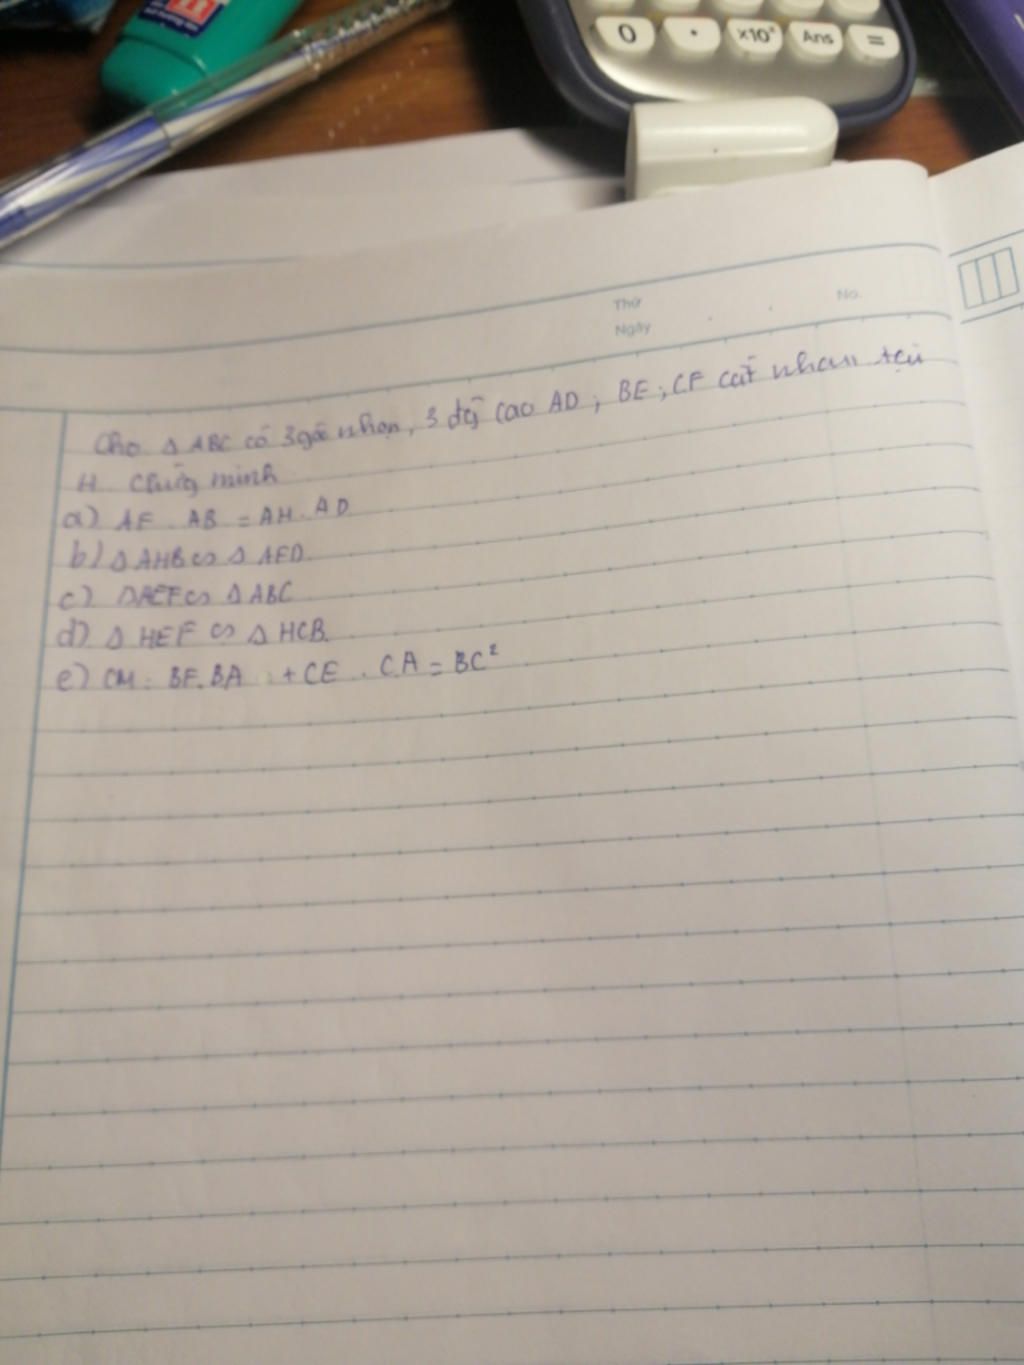 0 . x10ˣ Ans =
Thứ
Ngày
No.
Cho Δ ABC có 3 góc nhọn, 3 đg cao AD ; BE ; CF cắt nhau tại
H Chứng minh
a) AF . AB = AH . AD
b) Δ AHB ∽ Δ AFD.
c) ΔAEF ∽ Δ ABC
d) Δ HEF ∽ Δ HCB.
e) CM : BF.BA + CE . CA = BC²